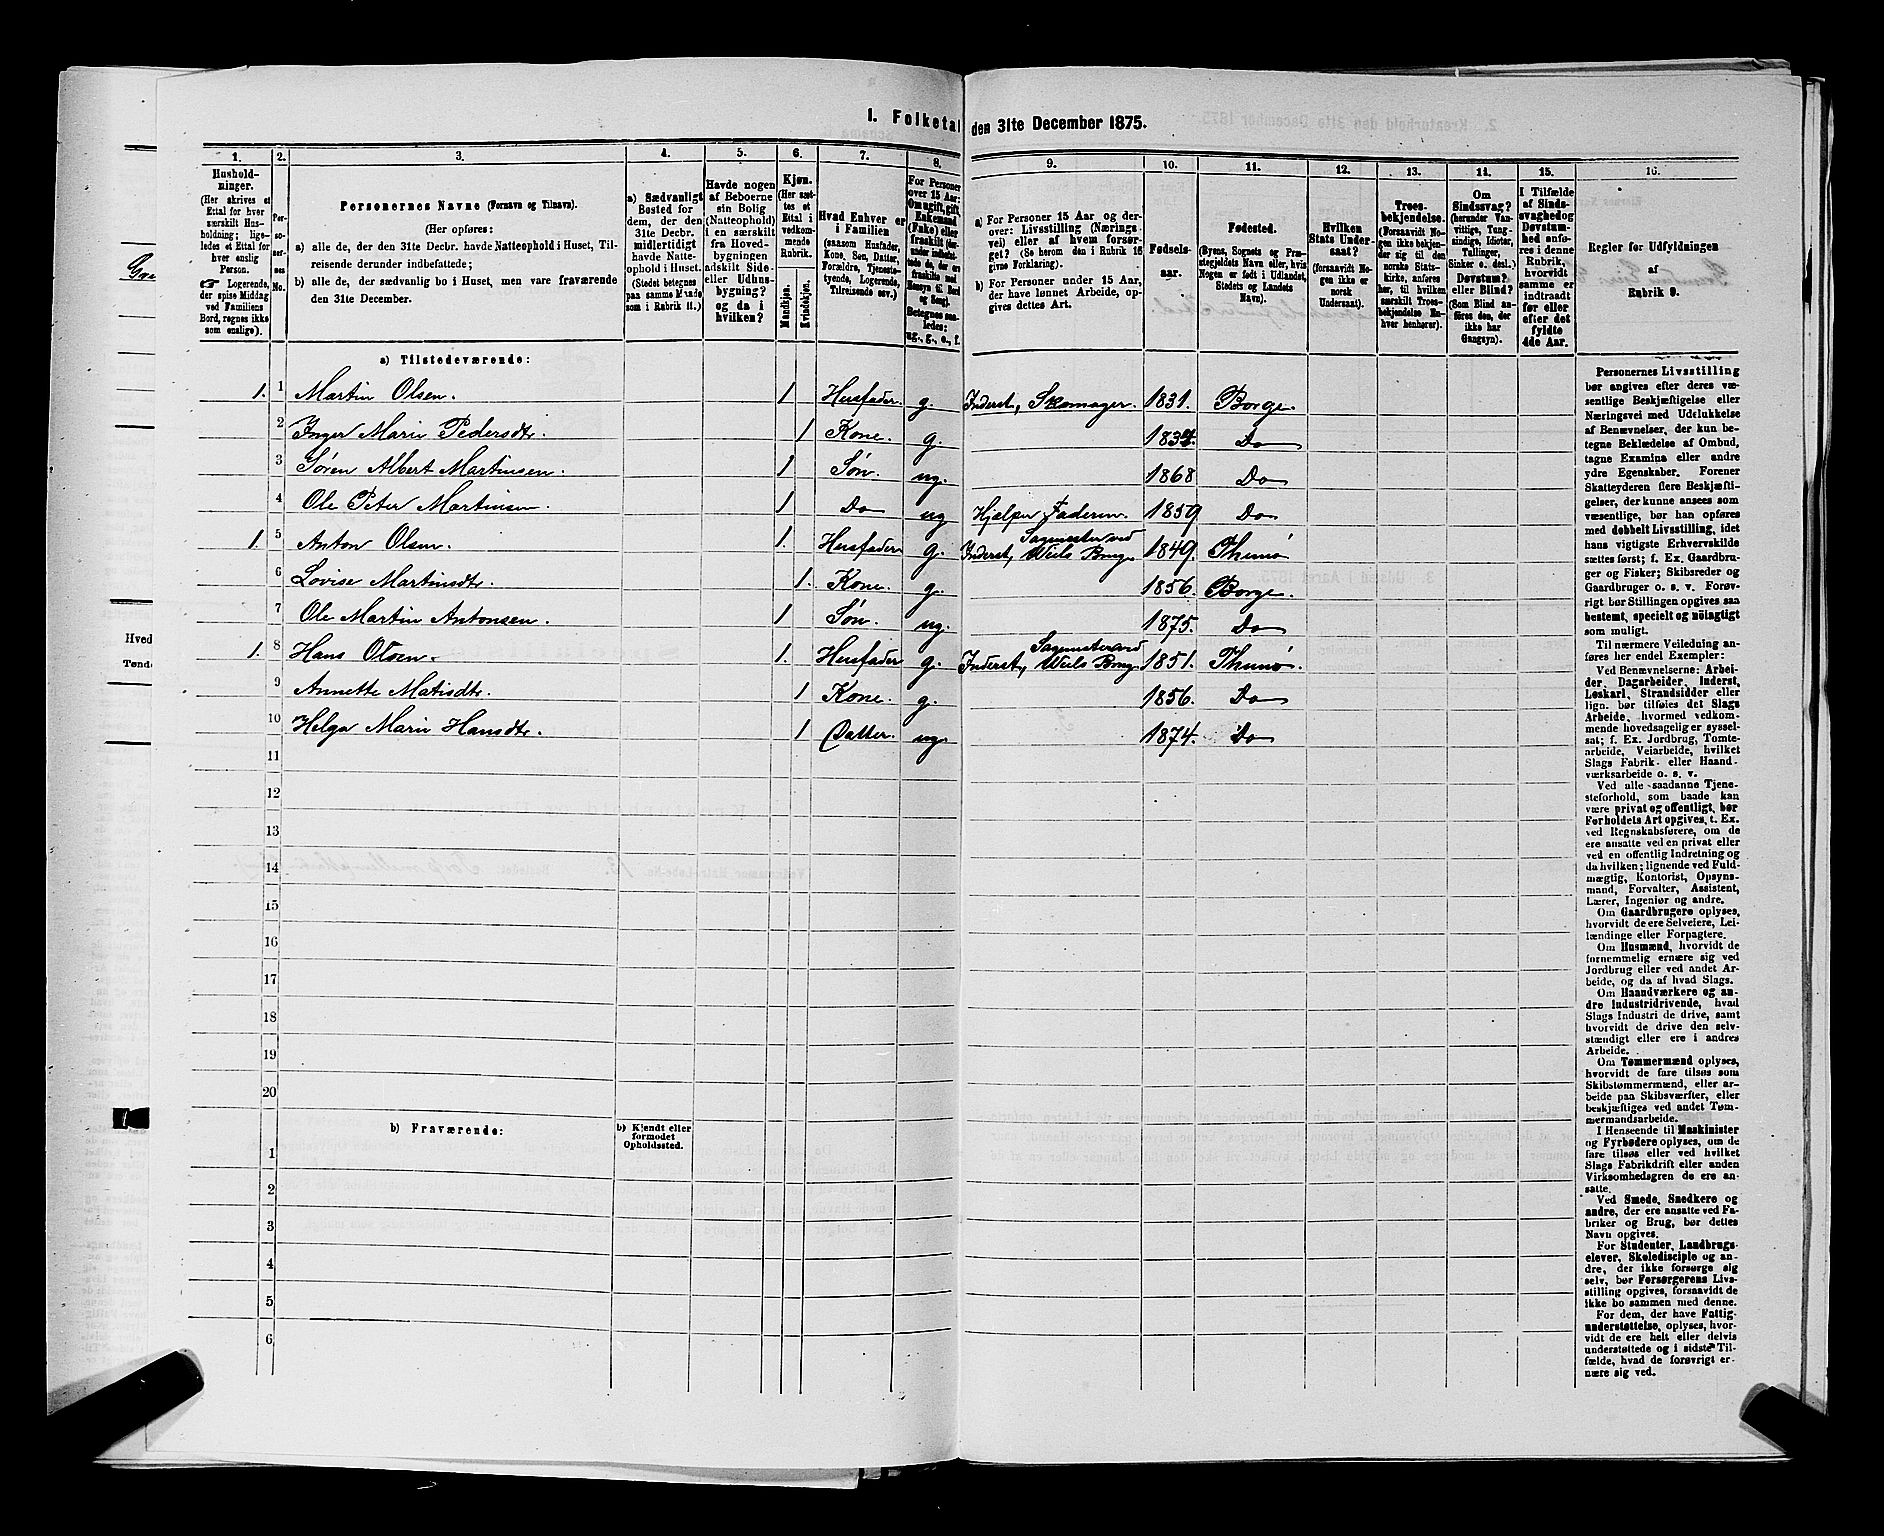 1. Folketal den 31te December 1875.
1. 2. 3. 4. 5. 6. 7. 8. 9. 10. 11. 12. 13. 14. 15. 16.
Hushold-
ninger.
(Her skrives et
Ettal for hver
særskilt Hus-
holdning; lige-
ledes et Ettal for
hver enslig
Person.
Logerende,
der spise Middag
ved Familiens
Bord, regnes ikke
som enslige).
Per-
so-
ner-
nes
No.
Personernes Navne (Fornavn og Tilnavn).
(Her opføres:
a) alle de, der den 31te Decbr. havde Natteophold i Huset, Til-
reisende derunder indbefattede;
b) alle de, der sædvanlig bo i Huset, men vare fraværende
den 31te December.
a) Sædvanligt
Bosted for
dem, der den
31te Decbr.
midlertidigt
havde Natte-
ophold i Huset.
(Stedet betegnes
paa samme Maade
som i Rubrik 11.)
Havde nogen
af Beboerne
sin Bolig
(Natteophold)
i en særskilt
fra Hoved-
bygningen
adskilt Side-
eller Udhus-
bygning?
og da i
hvilken?
Kjøn.
(Her sæt-
tes et
Ettal i
vedkom-
mende
Rubrik.
Mandkjøn.
Kvindekjøn.
Hvad Enhver er
i Familien
(saasom Husfader,
Kone, Søn, Datter,
Forældre, Tjeneste-
tyende, Logerende,
Tilreisende osv.)
For Personer
over 15 Aar:
Om ugift, gift,
Enkemand
(Enke) eller
fraskilt
Betegnes saa-
ledes:
ug., g., e., f.
a) For Personer 15 Aar og der-
over: Livsstilling (Nærings-
vei) eller af hvem forsør-
get? (Se herom den i Rubrik 16
givne Forklaring).
b) For Personer under 15 Aar,
der have lønnet Arbeide, op-
gives dettes Art.
Fødsels-
aar.
Fødested.
(Byens, Sognets og Præ-
stegjeldets Navn eller, hvis
Nogen er født i Udlandet,
Stedets og Landets
Navn).
Hvilken
Stats Under-
saat?
(forsaavidt No-
gen ikke er
norsk
Undersaat).
Troes-
bekjendelse.
(Forsaavidt No-
gen ikke bekjen-
der sig til den
norske Stats-
kirke, anføres
her, til hvilken
særskilt Troes-
bekjendelse En-
hver henhører).
Om
Sindssvag?
(herunder Van-
vittige, Tung-
sindige, Idioter,
Tullinger,
Sinker o. desl.)
Døvstum?
eller Blind?
(Som Blind an-
føres den, der
ikke har
Gangsyn).
I Tilfælde
af Sinds-
svaghed og
Døvstum-
hed anfø-
res i denne
Rubrik,
hvorvidt
samme er
indtraadt
før eller
efter det
fyldte
4de Aar.
Regler for Udfyldningen
af
Rubrik 9.
a) Tilstedeværende:
1. 1 Martin Olsen. 1 Husfader. g. Inderst, Skomager. 1831. Borge.
2 Inger Marie Pedersdtr. 1 Kone. g. 1834. Do
3 Søren Albert Martinsen. 1 Søn. ug. 1868 Do
4 Ole Peter Martinsen. 1 Do ug Hjælper Faderen. 1859 Do
1. 5 Anton Olsen. 1. Husfader g. Inderst, Sagmester ved Weels Brug. 1849. Thunø
6 Lovise Martinsdtr. 1. Kone. g. 1856. Borge.
7 Ole Martin Antonsen. 1 Søn. ug. 1875. Do
1. 8 Hans Olsen. 1. Husfader g. Inderst, Sagmester ved Weels Brug 1851. Thunø.
9 Annette Matisdtr. 1 Kone. g. 1856. Do
10 Helga Marie Hansdtr. 1 Datter. ug. 1874. Do
11
12
13
14
15
16
17
18
19
20
b) Fraværende:
b) Kjendt eller
formodet
Opholdssted.
1
2
3
4
5
6
Personernes Livsstilling
bør angives efter deres væ-
sentlige Beskjæftigelse eller
Næringsvei med Udelukkelse
af Benævnelser, der kun be-
tegne Beklædelse af Ombud,
tagne Examina eller andre
ydre Egenskaber. Forener
Skatteyderen flere Beskjæfti-
gelser, der kunne ansees som
væsentlige, bør han opføres
med dobbelt Livsstilling, idet
hans vigtigste Erhvervskilde
sættes først; f. Ex. Gaardbru-
ger og Fisker; Skibsreder og
Gaardbruger o. s. v. Forøv-
rigt bør Stillingen opgives saa
bestemt, specielt og nöiagtigt
som muligt.
Til nærmere Veiledning an-
føres her endel Exempler:
Ved Benævnelserne: Arbei-
der, Dagarbeider, Inderst,
Løskarl, Strandsidder eller
lign. bør tilføies det Slags
Arbeide, hvormed vedkom-
mende hovedsagelig er syssel-
sat; f. Ex. Jordbrug, Tomte-
arbeide, Veiarbeide, hvilket
Slags Fabrik- eller Haand-
værksarbeide o. s. v.
Ved alle saadanne Tjene-
steforhold, som baade kan
være privat og offentligt, bør
Forholdets Art opgives, t. Ex.
ved Regnskabsførere, om de
ere ansatte ved en privat eller
ved en offentlig Indretning og
da hvilken; lignende ved Fuld-
mægtig, Kontorist, Opsyns-
mand, Forvalter, Assistent,
Lærer, Ingeniør og andre.
Om Gaardbrugere oplyses,
hvorvidt de ere Selveiere, Lei-
lændinge eller Forpagtere.
Om Husmænd, hvorvidt de
fornemmelig ernære sig ved
Jordbrug eller ved andet Ar-
beide, og da af hvad Slags.
Om Haandværkere og an-
dre Industridrivende, hvad
Slags Industri de drive, samt
hvorvidt de drive den selv-
stændigt eller ere i andres
Arbeide.
Om Tømmermænd oplyses,
hvorvidt de fare tilsøs som
Skibstømmermænd, eller ar-
beide paa Skibsværfter, eller
beskjæftiges ved andet Tøm-
mermandsarbeide.
I Henseende til Maskinister
og Fyrbødere oplyses, om de
fare tilsøs eller ved hvilket
Slags Fabrikdrift eller anden
Virksomhedsgren de ere an-
satte.
Ved Smede, Snedkere og
andre, der ere ansatte ved Fa-
briker og Brug, bør dettes
Navn opgives.
For Studenter, Landbrugs-
elever, Skoledisciple og an-
dre, der ikke forsørge sig
selv, bør Forsørgerens Livs-
stilling opgives, forsaavidt de
ikke bo sammen med denne.
For dem, der have Fattig-
understøttelse, oplyses, hvor-
vidt de ere helt eller delvis
understøttede og i sidste Til-
fælde, hvad de forøvrigt er-
nære sig ved.